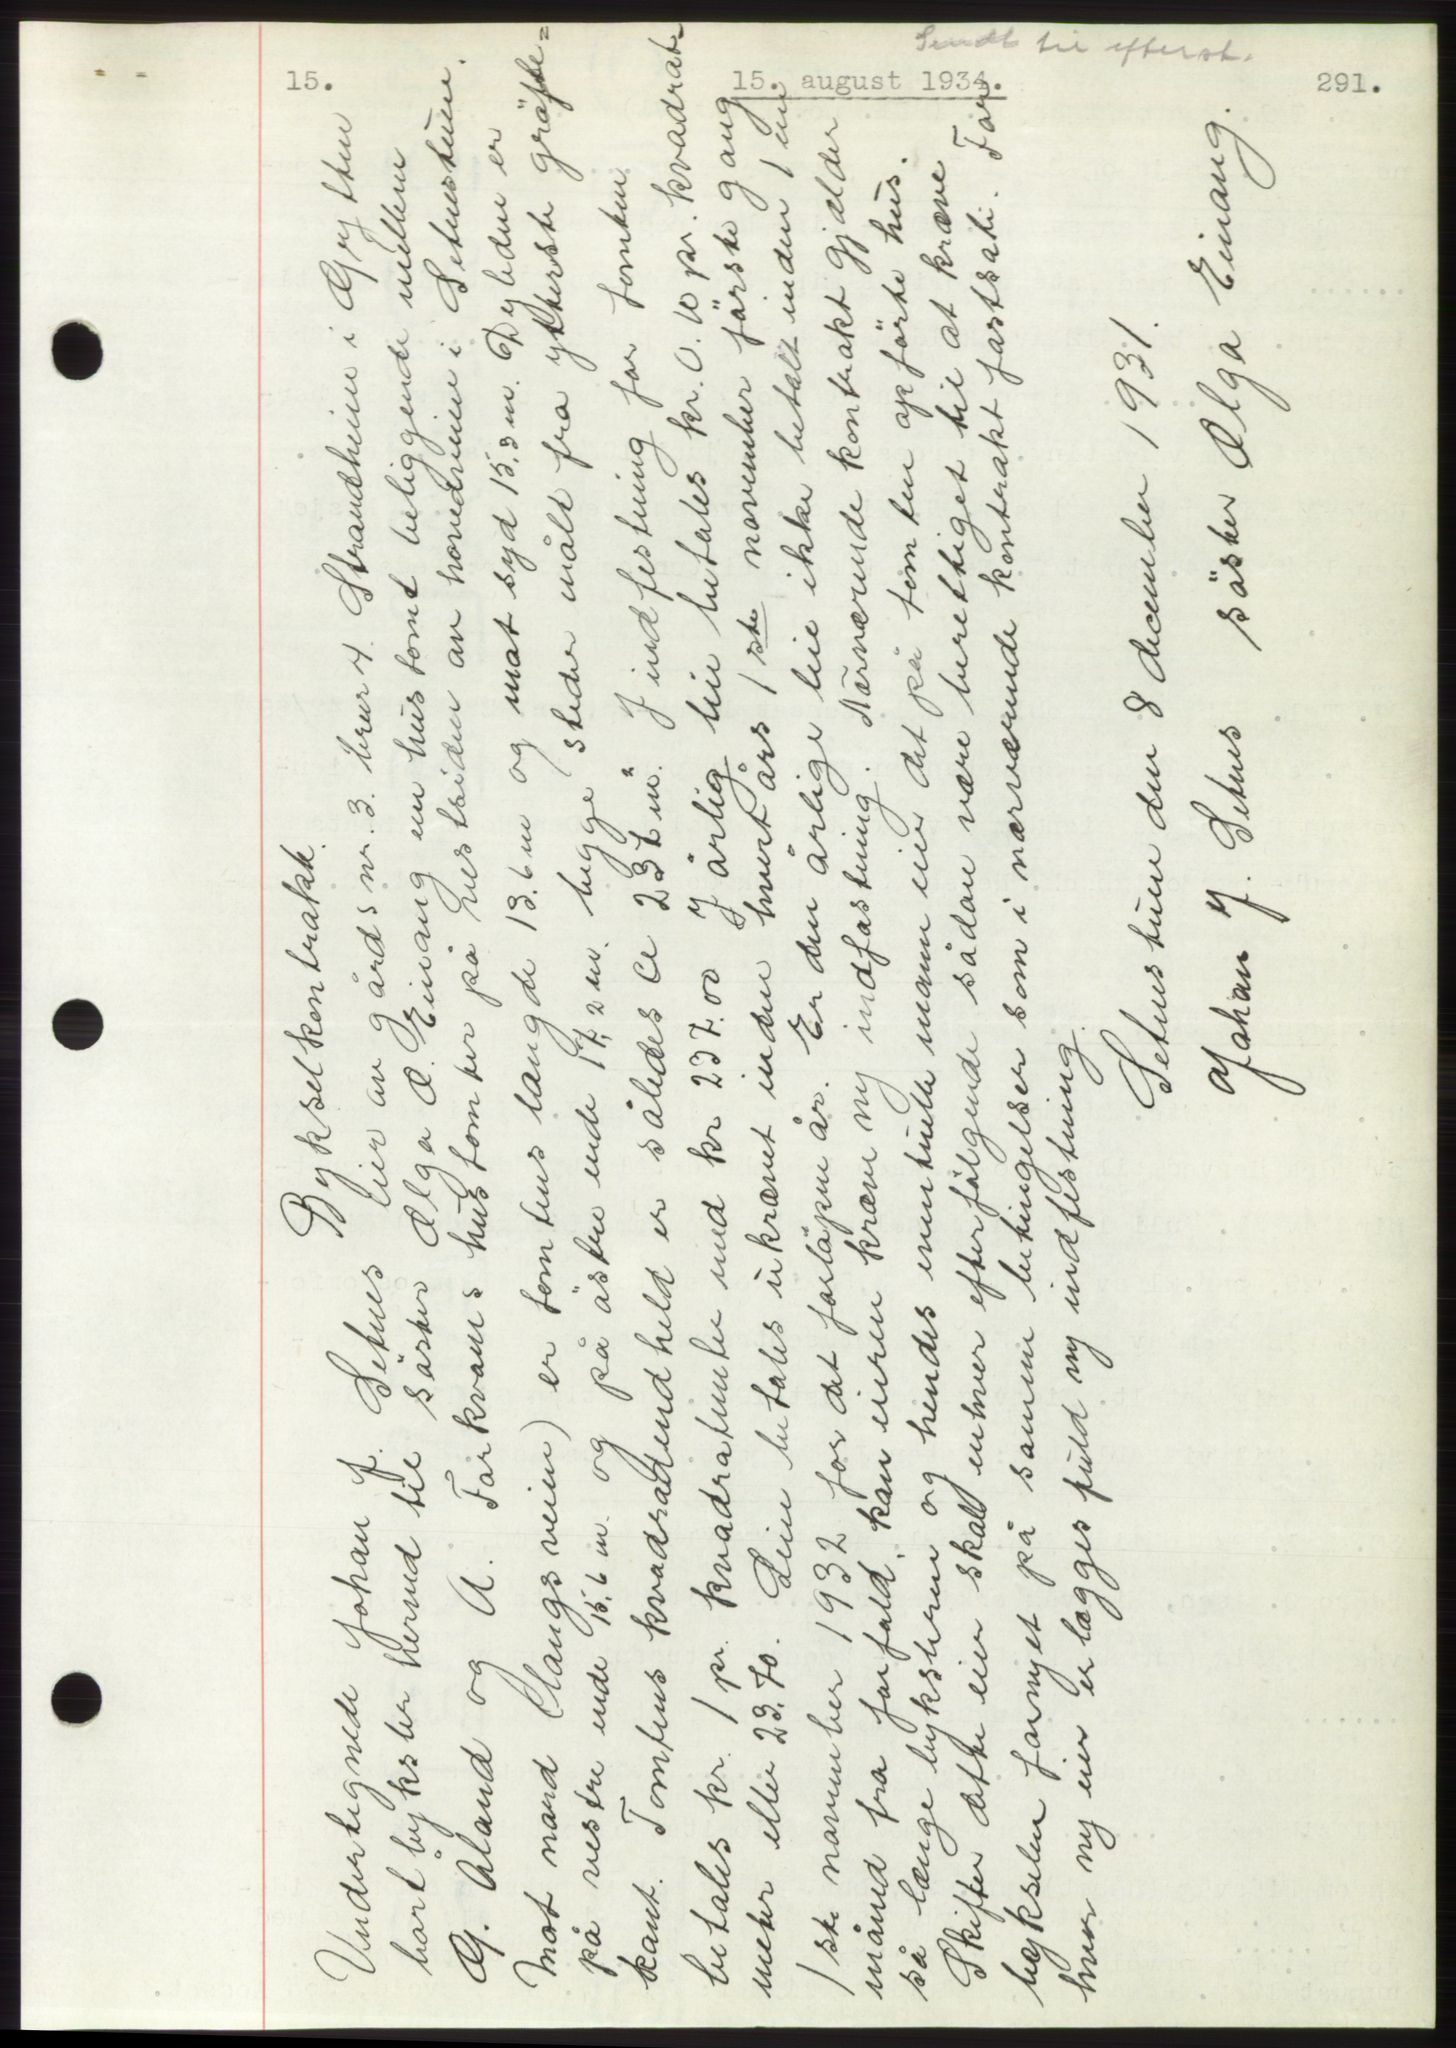 Sendt til efterst.
15. 15. august 1934. 291.
Bykselkontrakt.
Undertegnede Johan J. Setnes eier av gårdsnr. 3. brnr 4. Strandheim i Grytten
bort byksler herved til søster Olga O. Einang en hustomt beliggende mellem
O. Åland og A. Torkvams hustomter på vestsiden av hovedveien i Setnestuen.
Mot nord (langs veien) er tomtens længde 13.6 m og mot syd 15,3 m. Dybden er
på vestre ende 15,6 m. og på østre ende 17,2 m. begge steder målt fra ytterste grøfte=
kant. Tomtens kvadradindheld er således ca 237 m². I indfestning for tomten
betales kr. 1 pr. kvadratmeter med kr 237.00 I årlig leie betales kr. 0.10 pr. kvadrat-
meter eller 23.70. Leien betales ukrævet inden hvert års 1ste november første gang
1ste november 1932 for det forløpne år. Er den årlige leie ikke betalt inden 1 en
måned fra forfald, kan eieren kræve ny indfastning. Nærværende kontrakt gjælder
så længe byksleren og hendes eventuelle mann eier det på tomten opførte hus.
Skifter dette eier skal enhver efterfølgende sådan være berettiget til at kræve
bykselen fornyet på samme betingelser som i nærværende kontrakt fastsatt. For
hver ny eier erlægges fuld ny indfestning.
Setnestuen den 8 december 1931.
Johan J. Setnes søster Olga Einang.